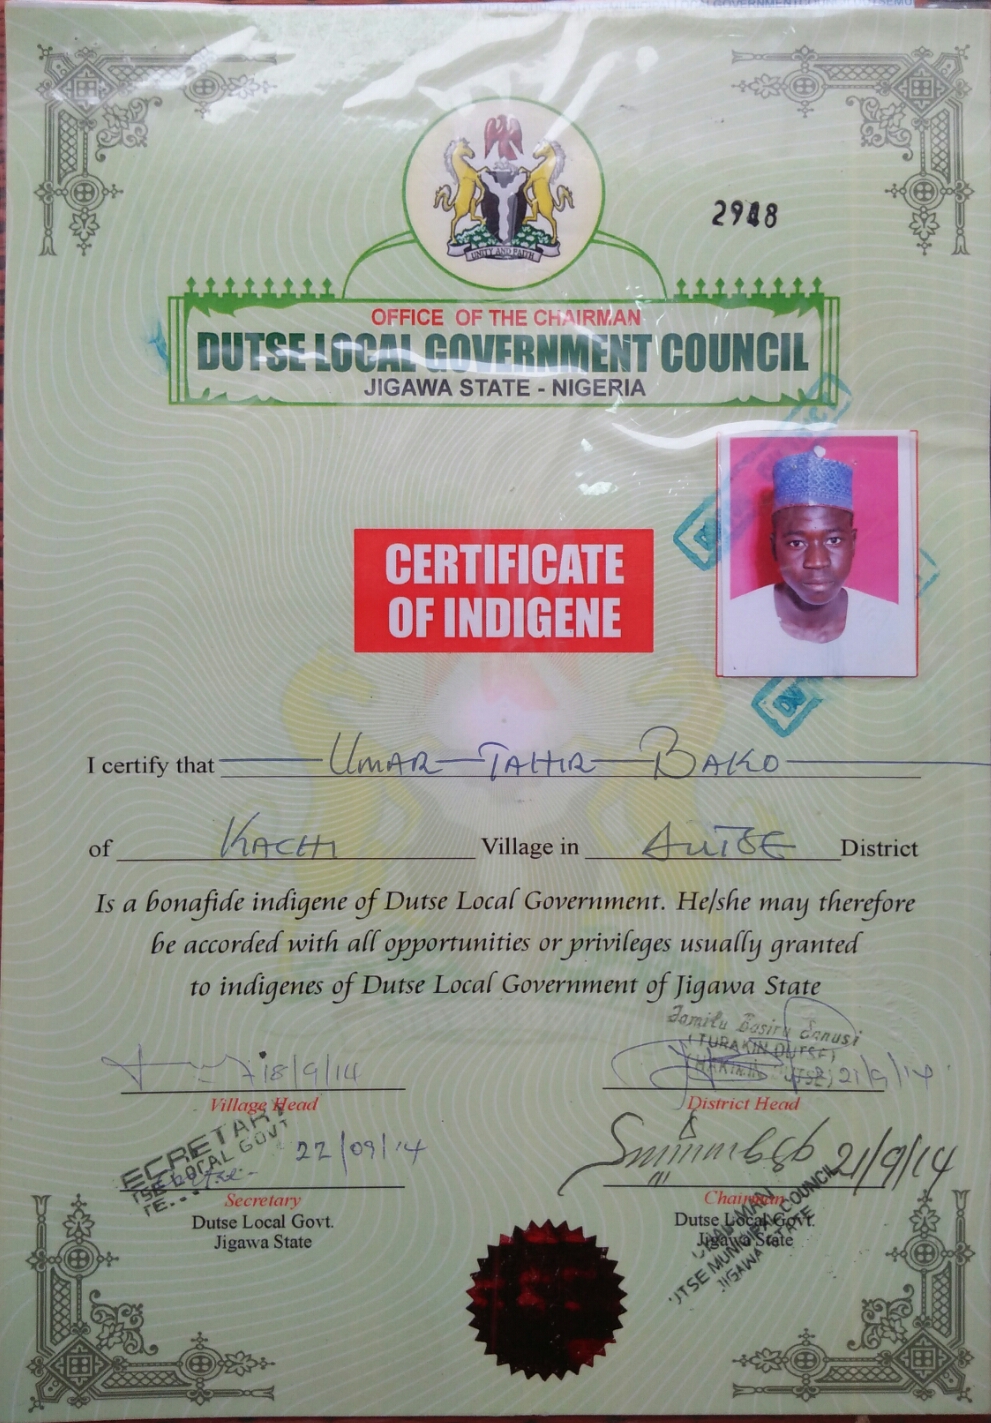 UNITY AND FAITH
2948
OFFICE OF THE CHAIRMAN
DUTSE LOCAL GOVERNMENT COUNCIL
JIGAWA STATE - NIGERIA
CERTIFICATE
OF INDIGENE
I certify that UMAR TAHIR BAKO
of KACHI Village in DUTSE District
Is a bonafide indigene of Dutse Local Government. He/she may therefore
be accorded with all opportunities or privileges usually granted
to indigenes of Dutse Local Government of Jigawa State
Jamilu Basiru Sanusi
(TURAKIN DUTSE)
18/9/14
21/9/14
Village Head
District Head
ECRETARY
TSE LOCAL GOVT
22/09/14
21/9/14
Secretary
Chairman
Dutse Local Govt.
Dutse Local Govt.
Jigawa State
Jigawa State
UTSE MUNICIPAL COUNCIL
JIGAWA STATE